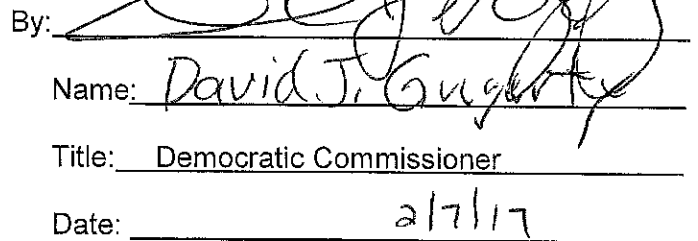 By:
Name: David J. Gugerty
Title: Democratic Commissioner
Date: 2/7/17